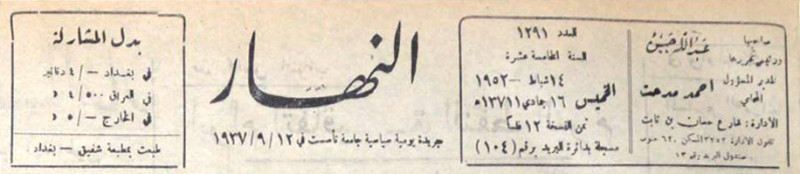 صاحبها
ورئيس تحريرها
عبدالله حسن
المدير المسؤول
المحامي
احمد مدحت
الادارة: شارع حسان بن ثابت
تلفون الادارة ٣٢٥٣ المسكن ٦٢٠
صندوق البريد رقم ١٣
العدد ١٢٩١
السنة الخامسة عشرة
الخميس
١٤ شباط — ١٩٥٢
١٦ جمادي ١١ ١٣٧١ه
ثمن النسخة ١٢ فلسا
مسجلة بدائرة البريد برقم (١٠٤)
النهار
جريدة يومية سياسية جامعة تأسست في ١٢/٩/١٩٣٧
بدل المشاركة
في بغداد —/٤ دنانير
في العراق ٥٠٠/٤ د
في الخارج —/٥ د
طبعت بمطبعة شفيق — بغداد